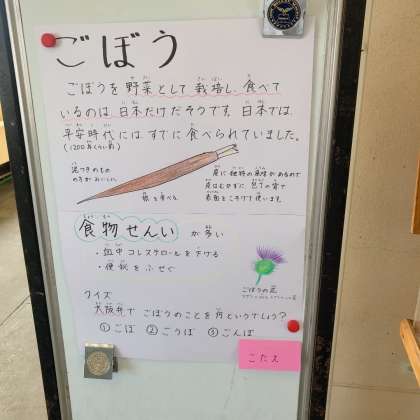 ごぼう
ごぼうを野菜として栽培し、食べて
いるのは日本だけだそうです。日本では、
平安時代にはすでに食べられていました。
(1200年くらい前)
泥つきのもの
のほうがおいしい。
根を食べる。
皮に独特の風味があるので
皮はむかずに包丁の背で
表面をこそげて使います。
食物せんい が多い
・血中コレステロールを下げる
・便秘をふせぐ
ごぼうの花
クイズ
大阪弁でごぼうのことを何というでしょう?
①ごぼ ②ごうぼ ③ごんぼ
こたえ